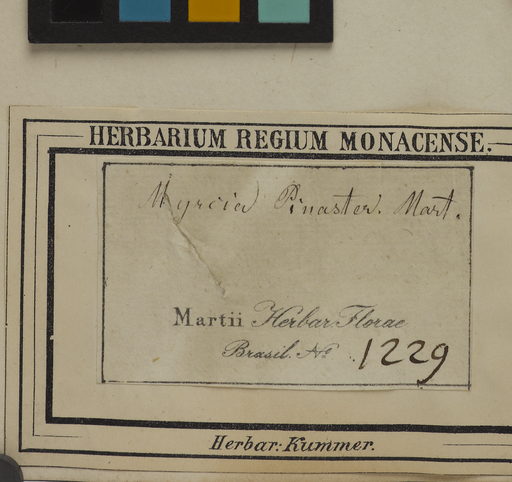 HERBARIUM REGIUM MONACENSE.
Myrcia Pinaster. Mart.
Martii Herbar. Florae
Brasil. No 1229
Herbar: Kummer.